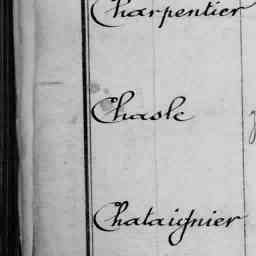 Charpentier
Chasle
Chataignier